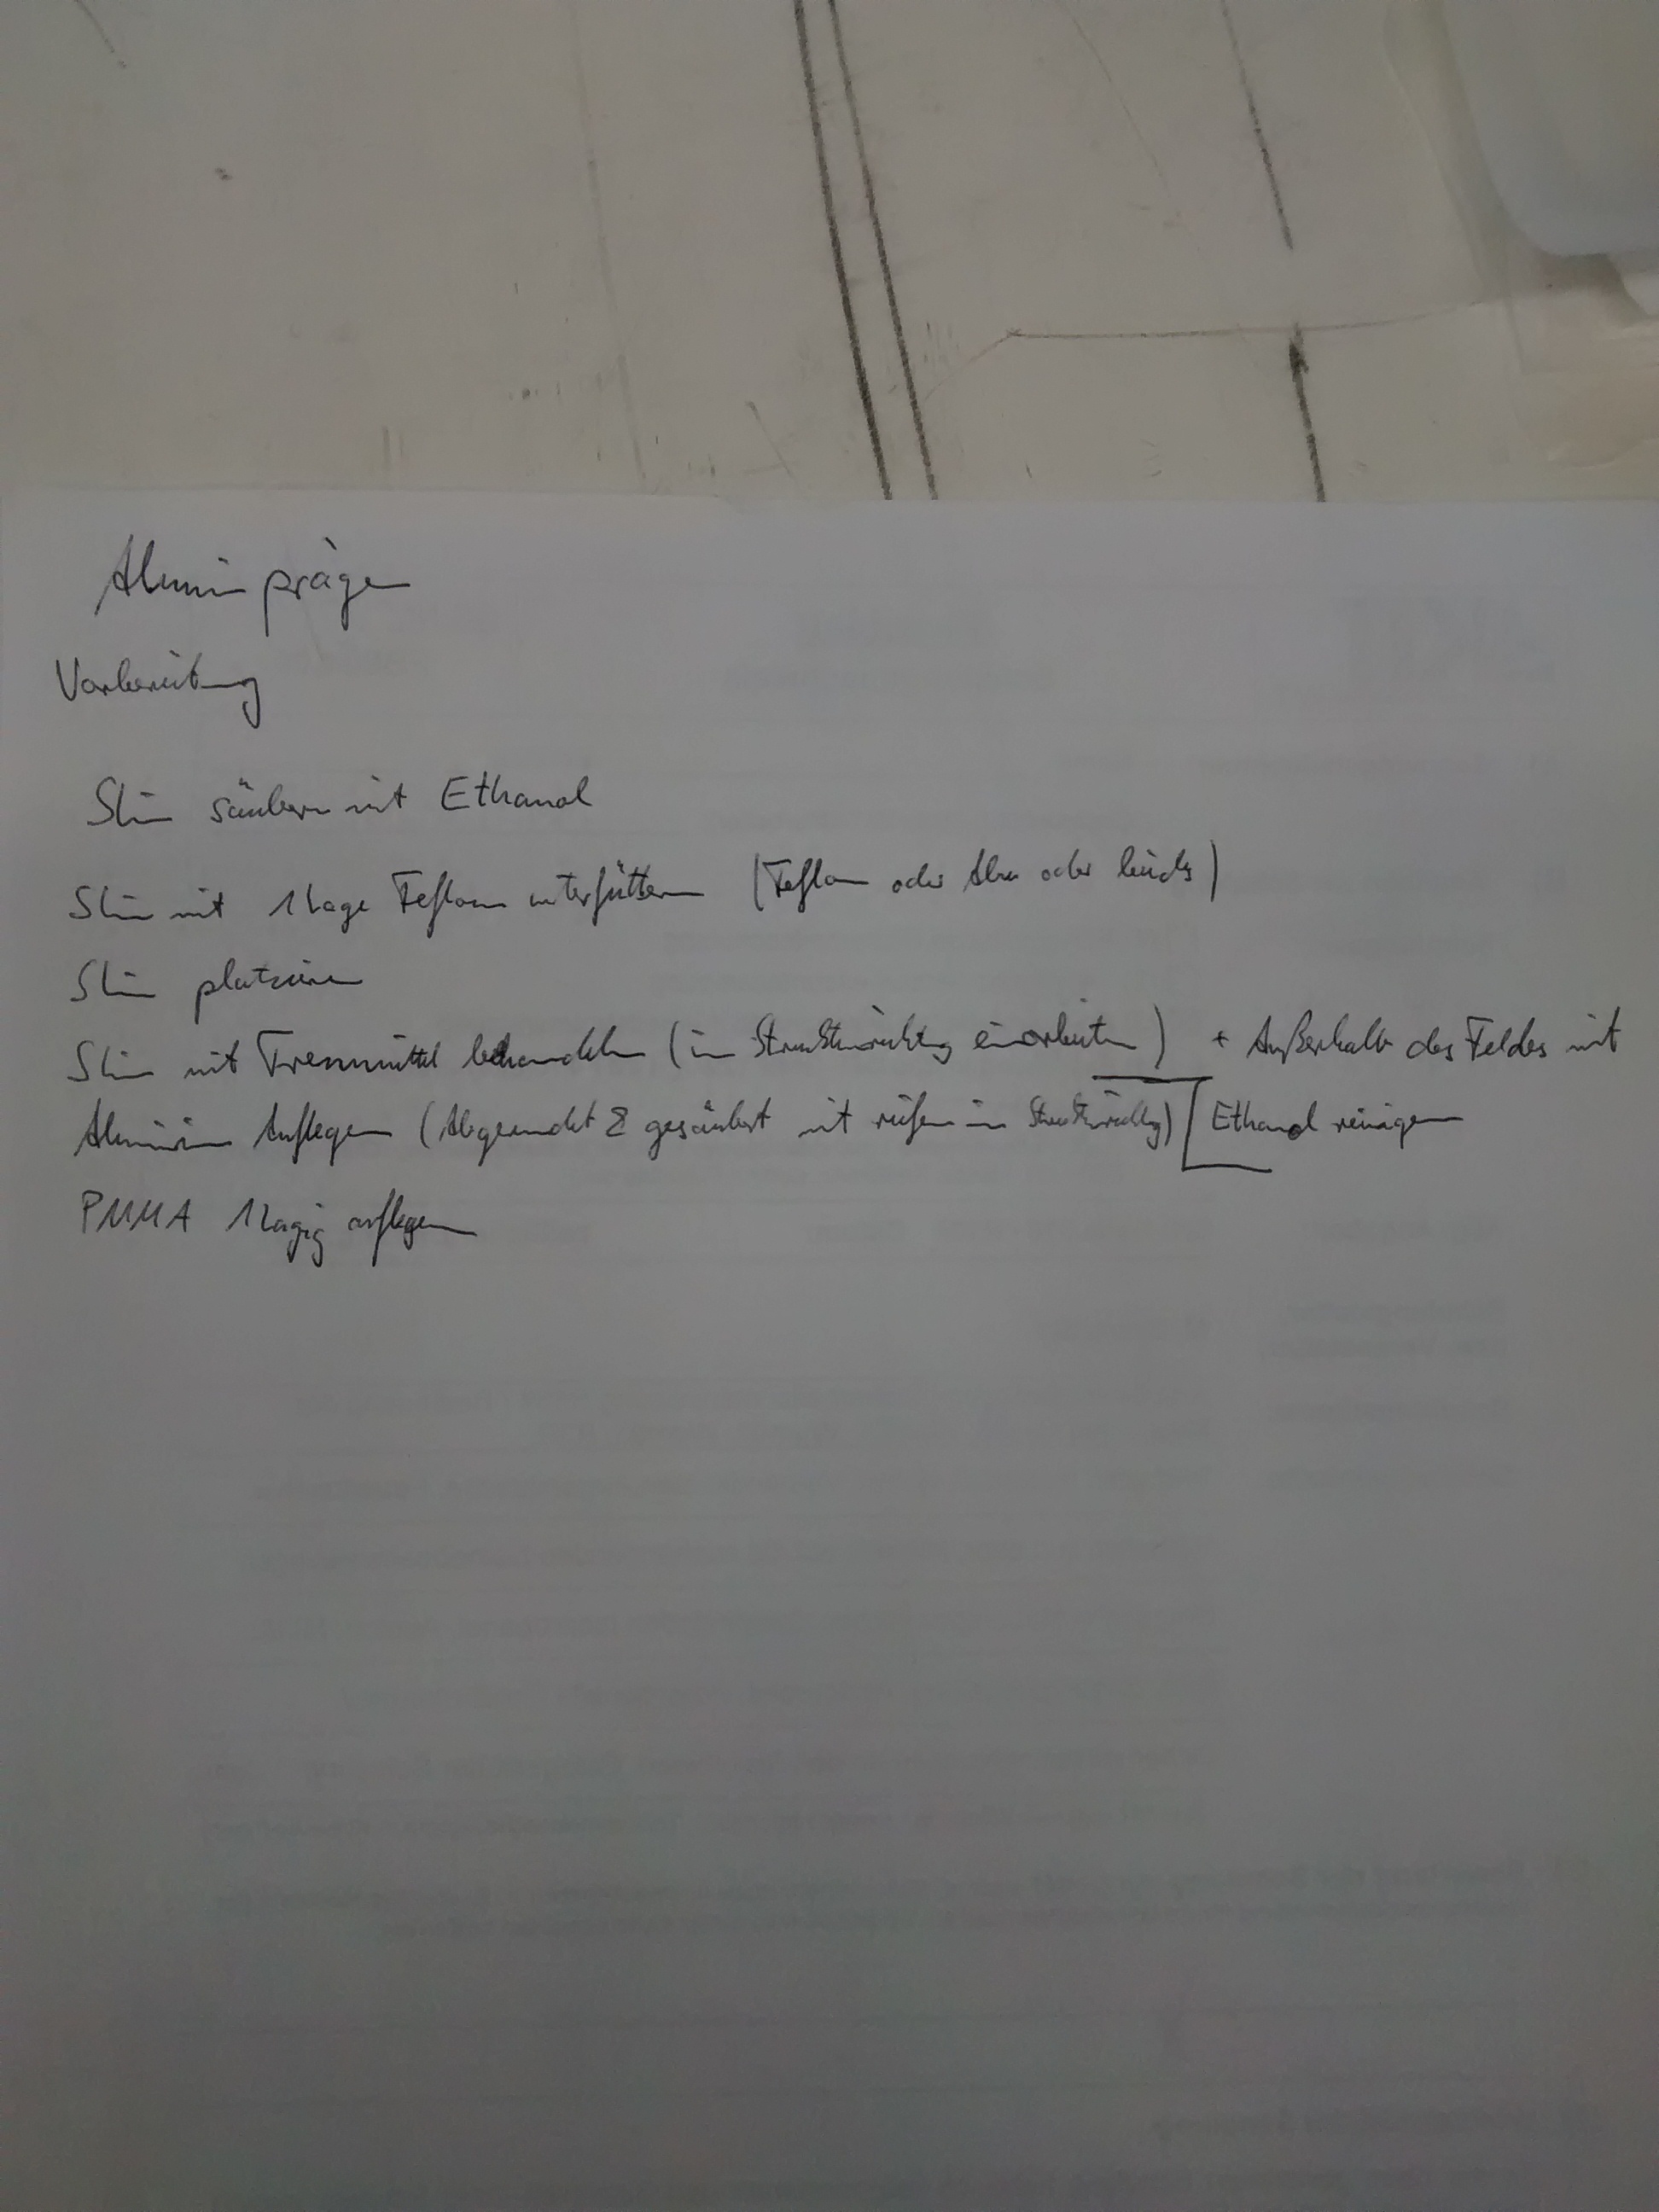 Alumin prägen
Vorbereitung
Shim säubern mit Ethanol
Shim mit 1 Lage Teflon unterfüttern (Teflon oder Alu oder beides)
Shim platzieren
Shim mit Trennmittel behandeln (in Strukturrichtung einarbeiten) + Außerhalb des Feldes mit
Aluminium Auflegen (Abgerundet & gesäubert mit in Strukturrichtung) Ethanol reinigen
PMMA 1 lagig auflegen